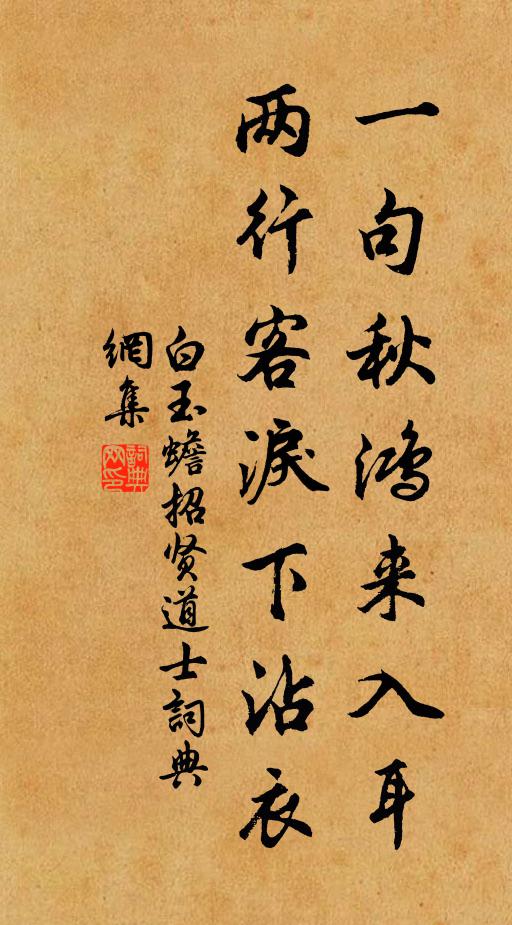 一句秋鸿来入耳
两行客淚下沾衣
白玉蟾招贤道士詞典
網集
詞典
网印